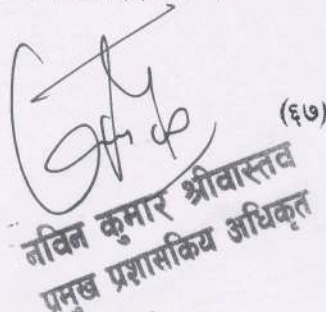 (६७)
नविन कुमार श्रीवास्तव
प्रमुख प्रशासकिय अधिकृत